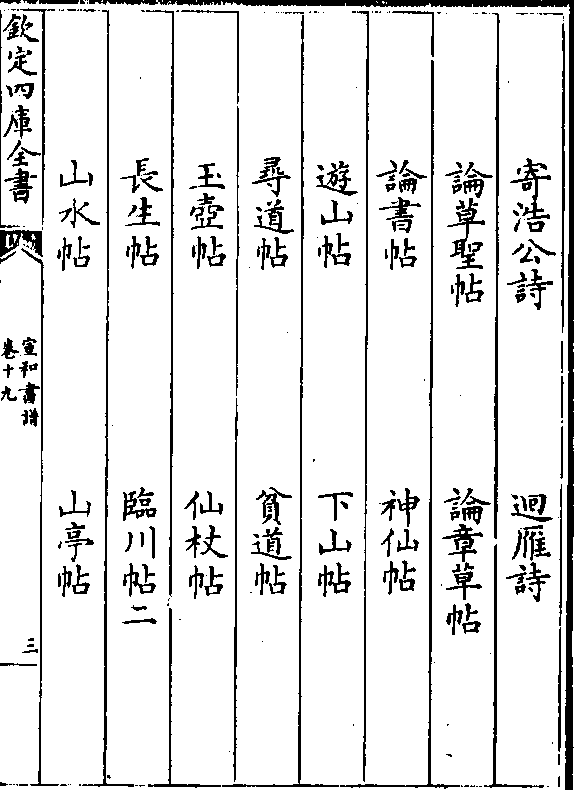 寄浩公詩　迴雁詩
論草聖帖　論章草帖
論書帖　神仙帖
遊山帖　下山帖
尋道帖　貧道帖
玉壺帖　仙杖帖
長生帖　臨川帖二
山水帖　山亭帖
欽定四庫全書　宣和書譜卷十九　三